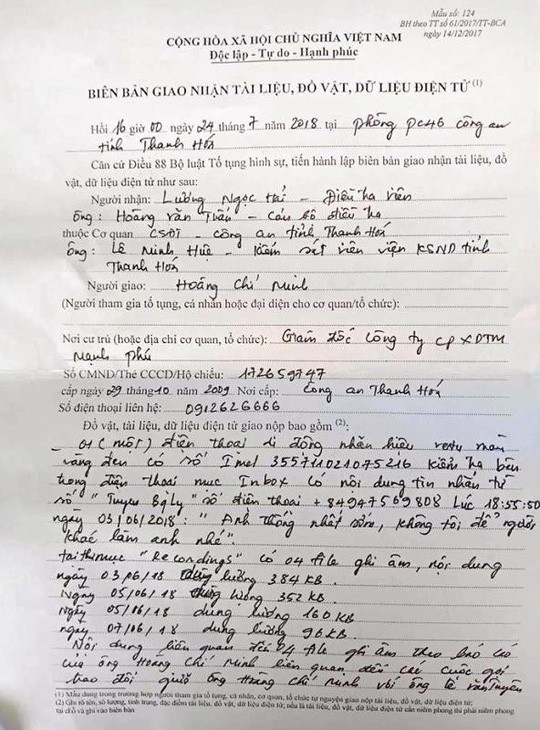 Mẫu số: 124
BH theo TT số 61/2017/TT-BCA
ngày 14/12/2017
CỘNG HÒA XÃ HỘI CHỦ NGHĨA VIỆT NAM
Độc lập - Tự do - Hạnh phúc
BIÊN BẢN GIAO NHẬN TÀI LIỆU, ĐỒ VẬT, DỮ LIỆU ĐIỆN TỬ (1)
Hồi 16 giờ 00 ngày 24 tháng 7 năm 2018 tại phòng PC46 công an
tỉnh Thanh Hoá
Căn cứ Điều 88 Bộ luật Tố tụng hình sự, tiến hành lập biên bản giao nhận tài liệu, đồ
vật, dữ liệu điện tử như sau:
Người nhận: Lương Ngọc Hải - Điều tra viên
ông: Hoàng Văn Tuấn - Cán bộ điều tra
thuộc Cơ quan CSĐT - công an tỉnh Thanh Hoá
ông: Lê Minh Huê - Kiểm sát viên viện KSND tỉnh
Thanh Hoá
Người giao: Hoàng Chí Minh
(Người tham gia tố tụng, cá nhân hoặc đại diện cho cơ quan/tổ chức):
Nơi cư trú (hoặc địa chỉ cơ quan, tổ chức): Giám đốc công ty CP XDTM
Mạnh Phú
Số CMND/Thẻ CCCD/Hộ chiếu: 172659747
cấp ngày 29 tháng 10 năm 2009 Nơi cấp: Công an Thanh Hoá
Số điện thoại liên hệ: 0912626666
Đồ vật, tài liệu, dữ liệu điện tử giao nộp bao gồm (2):
- 01 (một) điện thoại di động nhãn hiệu màu
vàng đen có số Imel 355711021075216 kiểm tra bên
trong điện thoại mục Inbox có nội dung tin nhắn từ
số " Tuyen Bq Ly " số điện thoại +84947569808 Lúc 18:55:50
ngày 03/06/2018: " Anh thống nhất sớm, không tôi để người
khác làm anh nhé".
tại thư mục "Recordings" có 04 file ghi âm, nội dung
ngày 03/06/18 dung lượng 384 KB.
Ngày 05/06/18 dung lượng 352 KB.
Ngày 05/06/18 dung lượng 160 KB
ngày 07/06/18 dung lượng 96 KB.
Nội dung liên quan đến 04 file ghi âm theo báo cáo
của ông Hoàng Chí Minh liên quan đến các cuộc gọi
trao đổi giữa ông Hoàng Chí Minh với ông Lê Văn Tuyên
(1) Mẫu dùng trong trường hợp người tham gia tố tụng, cá nhân, cơ quan, tổ chức tự nguyện giao nộp tài liệu, đồ vật, dữ liệu điện tử;
(2) Ghi rõ tên, số lượng, tình trạng, đặc điểm tài liệu, đồ vật, dữ liệu điện tử; nếu là tài liệu, đồ vật, dữ liệu điện tử cần niêm phong thì phải niêm phong
tại chỗ và ghi vào biên bản.